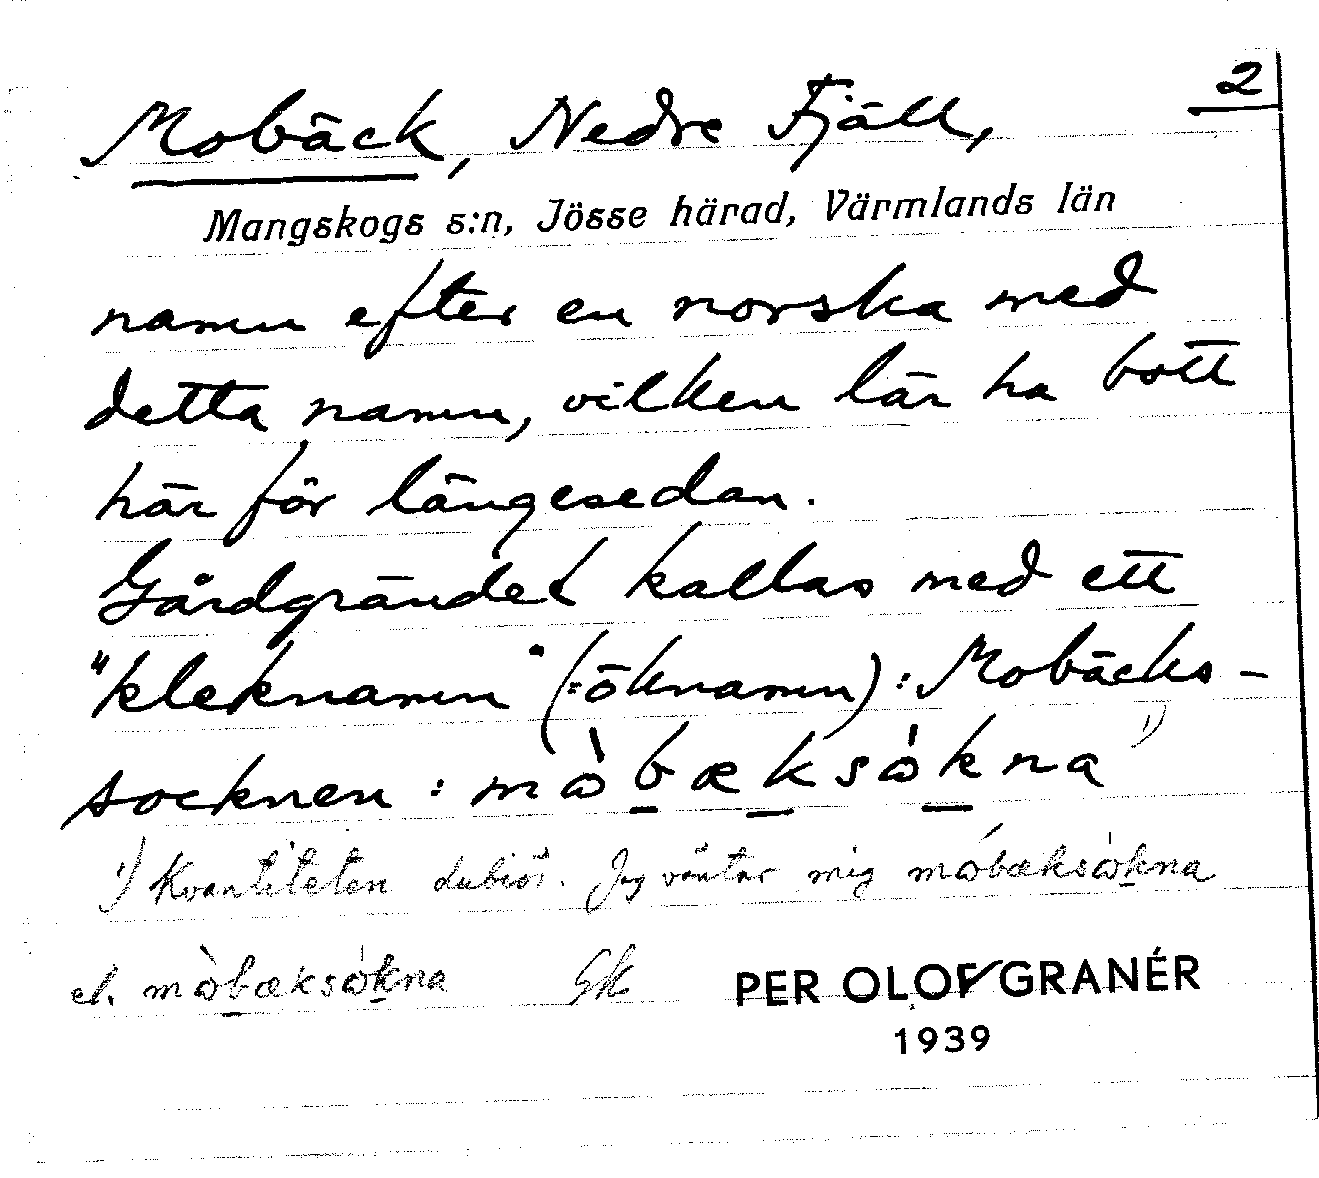 2
Mobäck, Nedre Fjäll,
Mangskogs s:n, Jösse härad, Värmlands län
namn efter en norska med
detta namn, vilken lär ha bott
här för längesedan.
Gårdgrändet kallas med ett
"kleknamn" (=öknamn): Mobäcks-
socknen: mòbæksòkna 1)
1) Kvantiteten dubiös. Jag väntar mig móbæksòkna
el. mòbæksòkna Gk
PER OLOF GRANÉR
1939